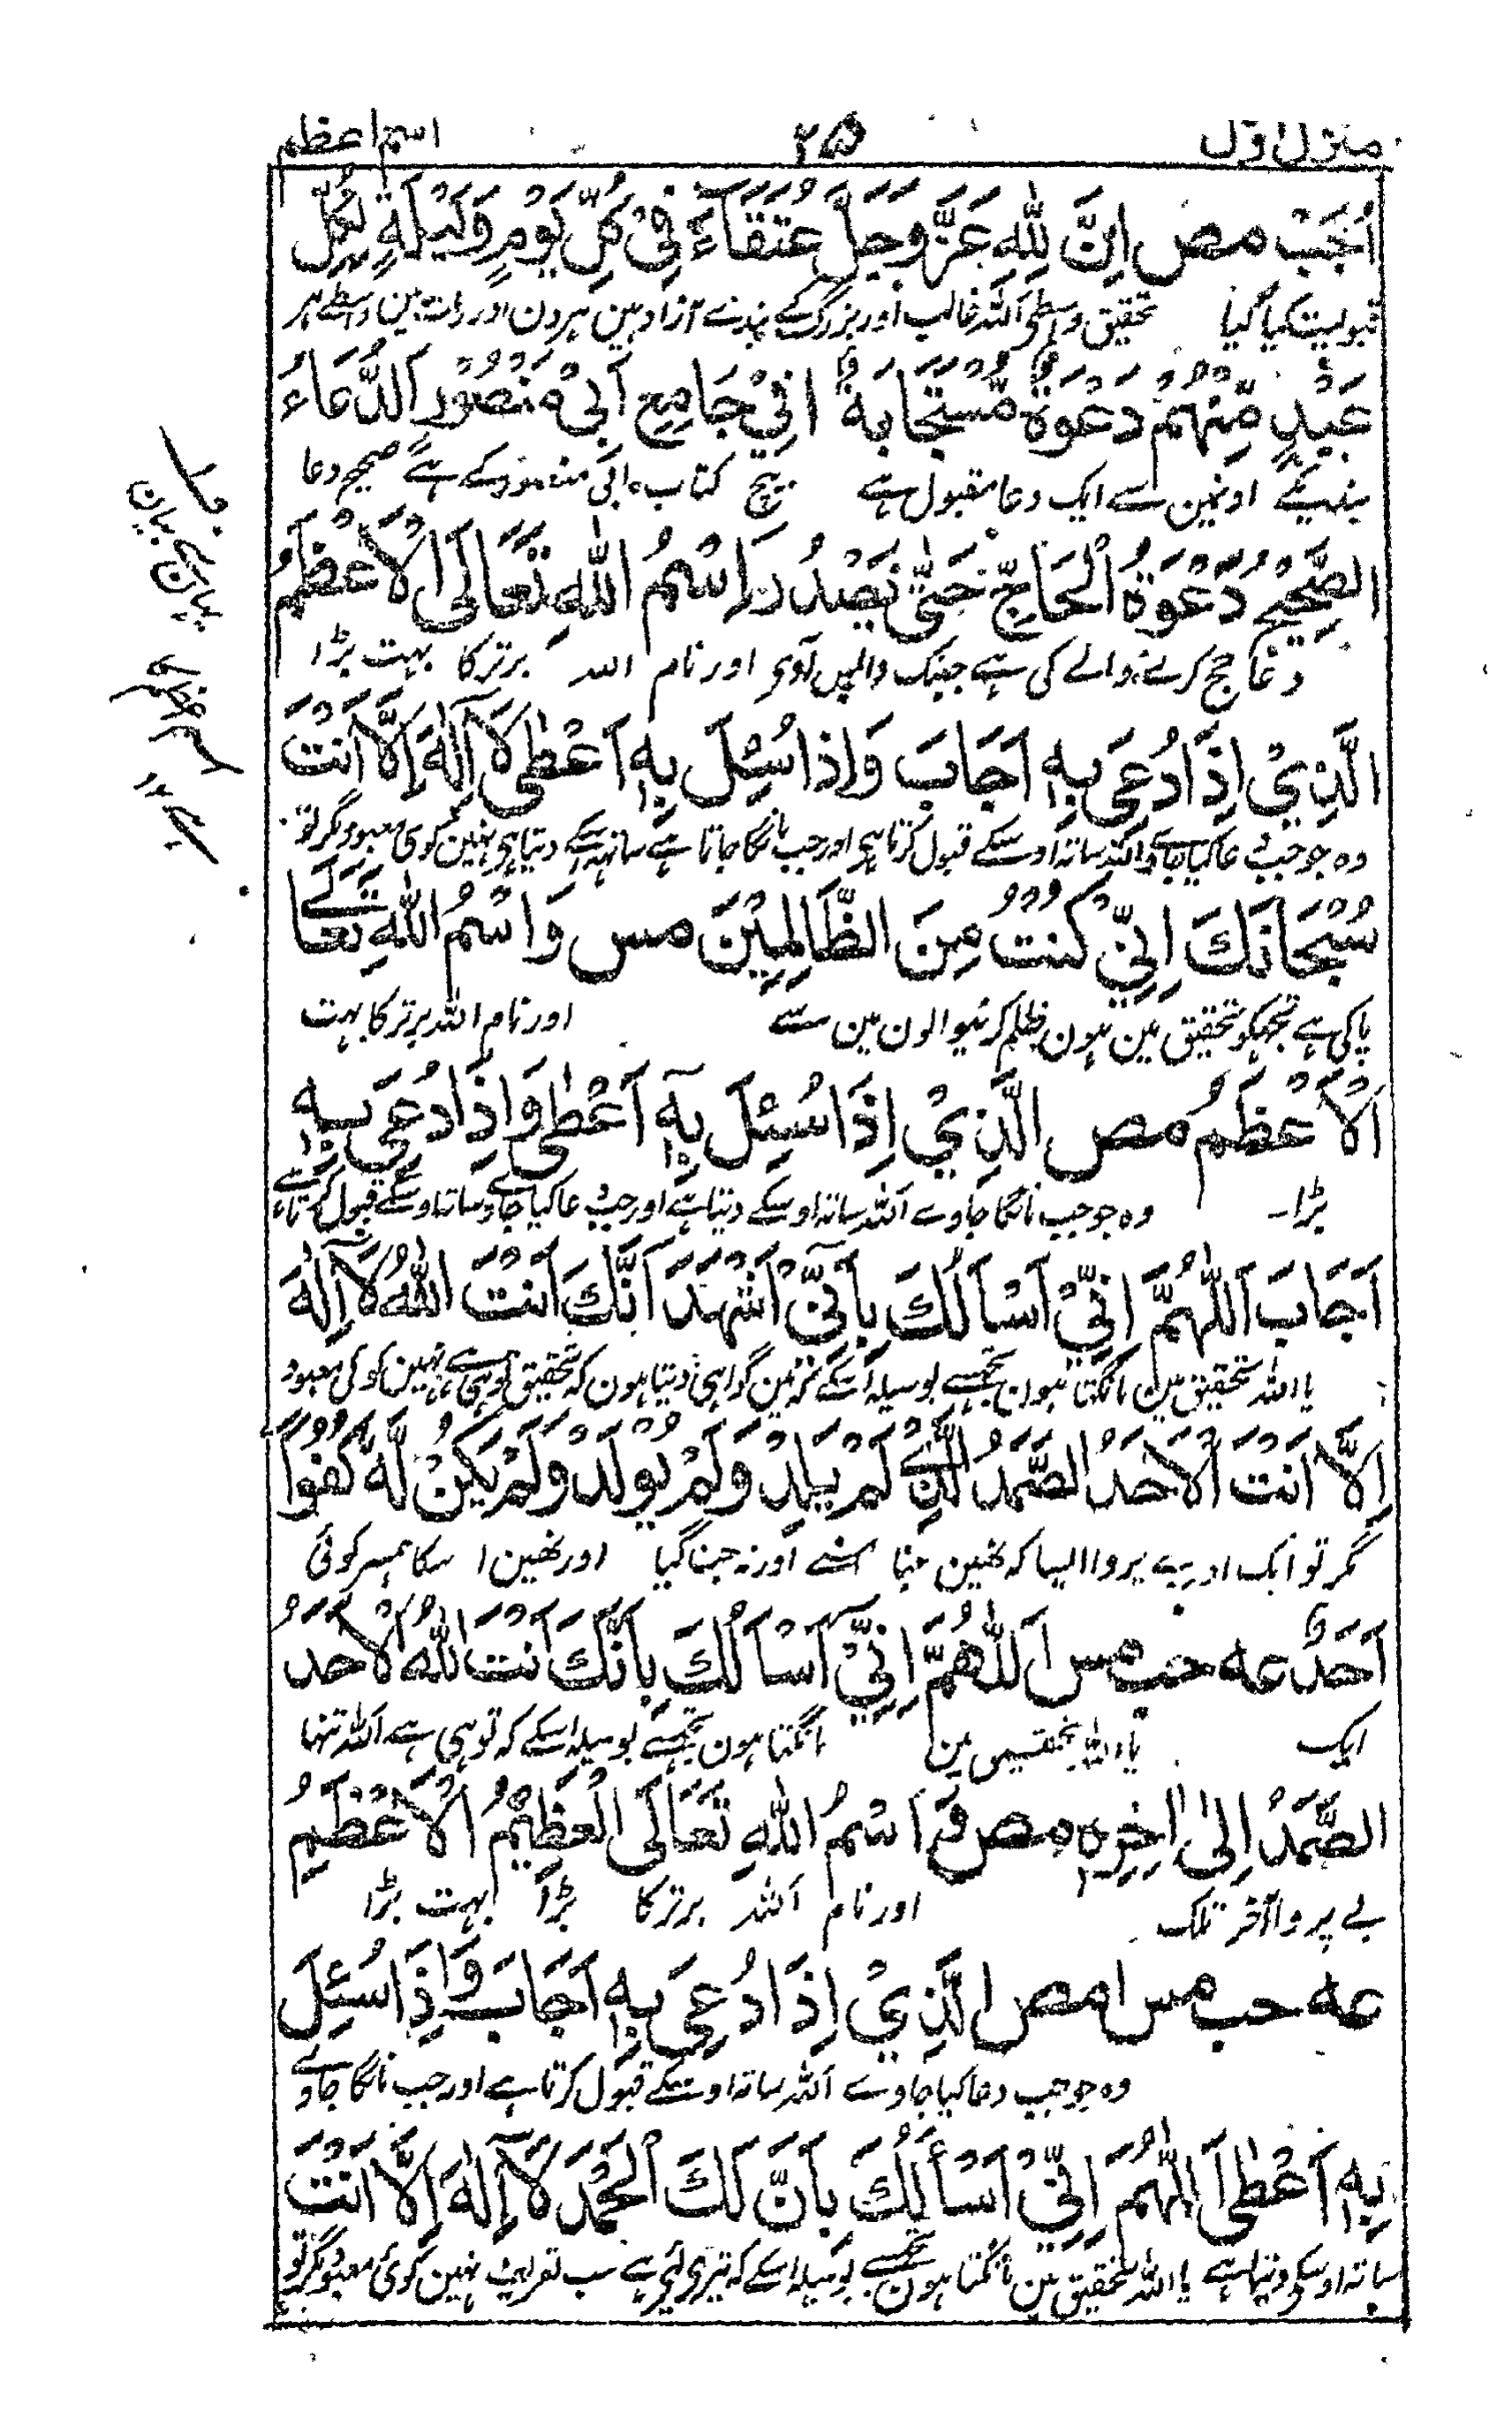 منزل اول ۲۵ اسم اعظم
اُجَبْ مص اِنَّ لِلّٰهِ عَزَّ وَجَلَّ عُتَقَآءَ فِيْ كُلِّ يَوْمٍ وَّلَيْلَةٍ لِكُلِّ
قبولیت کیا گیا تحقیق واسطے اللہ غالب اور بزرگ کے بندے آزاد ہین ہر دن اور رات مین واسطے ہر
عَبْدٍ مِّنْهُمْ دَعْوَةٌ مُّسْتَجَابَةٌ ا فِيْ جَامِعِ اَبِيْ مَنْصُوْرِ الدُّعَاءُ
بندیکے اونمین سے ایک دعا مقبول ہے بیچ کتاب ابی منصور کے ہے صحیح دعا
الصَّحِيْحُ دَعْوَةُ الْحَاجِّ حَتّٰى يَصْدُرَ اِسْمُ اللّٰهِ تَعَالَى الْاَعْظَمُ
دعا حج کرنے والے کی ہے جبتک واپس آوے اور نام اللہ برتر کا بہت بڑا
الَّذِيْ اِذَا دُعِيَ بِهٖ اَجَابَ وَاِذَا سُئِلَ بِهٖ اَعْطٰى لَآ اِلٰهَ اِلَّا اَنْتَ
وہ جو جب دعا کیا جاوے اللہ ساتہ اوسکے قبول کرتا ہی اور جب مانگا جاتا ہے ساتہہ اسکے دیتا ہی نہین کوی معبود مگر تو
سُبْحَانَكَ اِنِّيْ كُنْتُ مِنَ الظَّالِمِيْنَ مس وَاسْمُ اللّٰهِ تَعَالٰى
پاکی ہے تجہکو تحقیق مین ہون ظلم کرنیوالون مین سے اور نام اللہ برتر کا بہت
الْاَعْظَمُ مص الَّذِيْ اِذَا سُئِلَ بِهٖٓ اَعْطٰى وَاِذَا دُعِيَ بِهٖ
بڑا۔ وہ جو جب مانگا جاوے اللہ ساتہ اوسکے دیتا ہے اور جب دعا کیا جاوے ساتہ اوسکے قبول کرتا ہے
اَجَابَ اَللّٰهُمَّ اِنِّيْ اَسْاَلُكَ بِاَنِّيْ اَشْهَدُ اَنَّكَ اَنْتَ اللّٰهُ لَآ اِلٰهَ
یا اللہ تحقیق مین مانگتا ہون تجہسے بوسیلہ اسکے کہ مین گواہی دیتا ہون کہ تحقیق تو ہی ہے نہین کوئی معبود
اِلَّا اَنْتَ الْاَحَدُ الصَّمَدُ الَّذِيْ لَمْ يَلِدْ وَلَمْ يُوْلَدْ وَلَمْ يَكُنْ لَّهٗ كُفُوًا
مگر تو ایک اور بے پروا ایسا کہ نہین جنا اسنے اور نہ جنا گیا اور نہین اسکا ہمسر کوئی
اَحَدٌ عه حب مس اَللّٰهُمَّ اِنِّيْٓ اَسْاَلُكَ بِاَنَّكَ اَنْتَ اللّٰهُ الْاَحَدُ
ایک یا اللہ تحقیق مین مانگتا ہون تجہسے بوسیلہ اسکے کہ تو ہی ہے اللہ تنہا
الصَّمَدُ اِلٰى اٰخِرِهٖ مص وَ اسْمُ اللّٰهِ تَعَالَى الْعَظِيْمُ الْاَعْظَمُ
بے پروا آخر تلک اور نام اللہ برتر کا بڑا بہت بڑا
عه حب مس امص الَّذِيْ اِذَا دُعِيَ بِهٖ اَجَابَ وَاِذَا سُئِلَ
وہ جو جب دعا کیا جاوے اللہ ساتہ اوسکے قبول کرتا ہے اور جب مانگا جاوے
بِهٖ اَعْطٰى اَللّٰهُمَّ اِنِّيْ اَسْاَلُكَ بِاَنَّ لَكَ الْحَمْدَ لَآ اِلٰهَ اِلَّا اَنْتَ
ساتہ اوسکے دیتا ہے یا اللہ تحقیق مین مانگتا ہون تجہسے بوسیلہ اسکے کہ تیری لئے ہے سب تعریف نہین کوئی معبود مگر تو